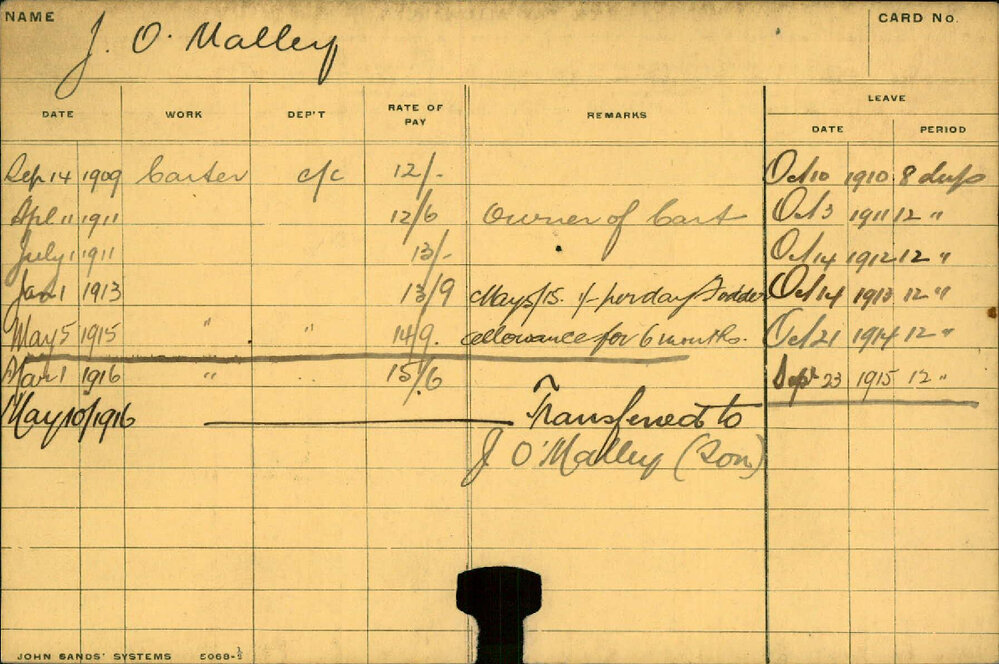 NAME J. O. Malley CARD No.
LEAVE
DATE WORK DEP'T RATE OF PAY REMARKS DATE PERIOD
Sep 14 1909 Carter c/c 12/- Oct 10 1910 8 days
Apl 11 1911 12/6 Owner of Cart Oct 3 1911 12 "
July 1 1911 13/- Oct 14 1912 12 "
Jan 1 1913 13/9 May 5/15. 1/- per day Fodder Oct 14 1913 12 "
May 5 1915 " " 14/9. allowance for 6 months. Oct 21 1914 12 "
Mar 1 1916 " 15/6 Sept 23 1915 12 "
May 10/1916 Transferred to
J. O'Malley (Son)
JOHN SANDS' SYSTEMS